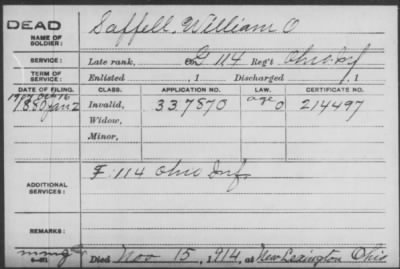 DEAD
NAME OF SOLDIER: Saffell, William O
SERVICE: Late rank, Co. G 114 Reg't Ohio Inf
TERM OF SERVICE: Enlisted , 1 Discharged , 1
DATE OF FILING. CLASS. APPLICATION NO. LAW. CERTIFICATE NO.
1880 Jan 2 Invalid, 337870 age 0 214497
Widow,
Minor,
ADDITIONAL SERVICES: F. 114 Ohio Inf.
REMARKS:
Died Nov 15, 1914, at New Lexington Ohio